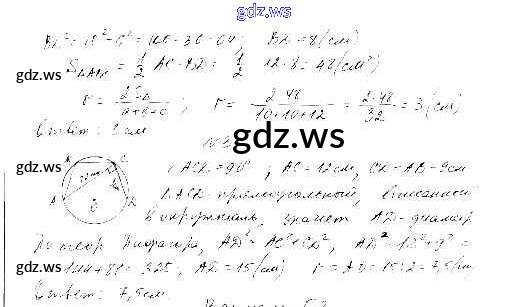 gdz.ws
BD² = 10² - 6² = 100 - 36 = 64; BD = 8 (см)
gdz.ws
S = 1/2 AC · BD = 1/2 12 · 8 = 48 (см²)
r = 2S/(a+b+c); r = 2·48/(10+10+12) = 2·48/32 = 3 (см)
Ответ: 3 см.
gdz.ws
gdz.ws
∠ACD = 90°; AC = 12 см, CD = AB = 9 см
ΔACD прямоугольный, вписанный
в окружность, значит AD - диаметр
По теор Пифагора, AD² = AC² + CD², AD² = 12² + 9² =
gdz.ws
= 144 + 81 = 225, AD = 15 (см) = 15 : 2 = 7,5 (см)
Ответ: 7,5 см.
gdz.ws